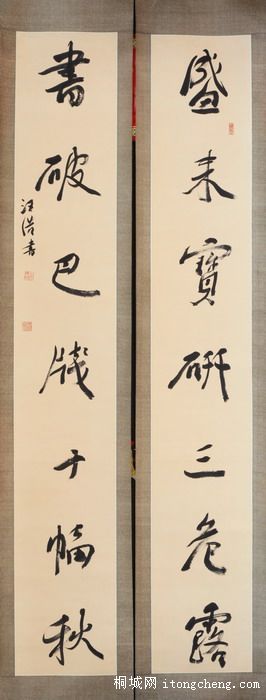 盛来寶研三危露
書破巴牋千幅秋
汪浩書
桐城网 itongcheng.com